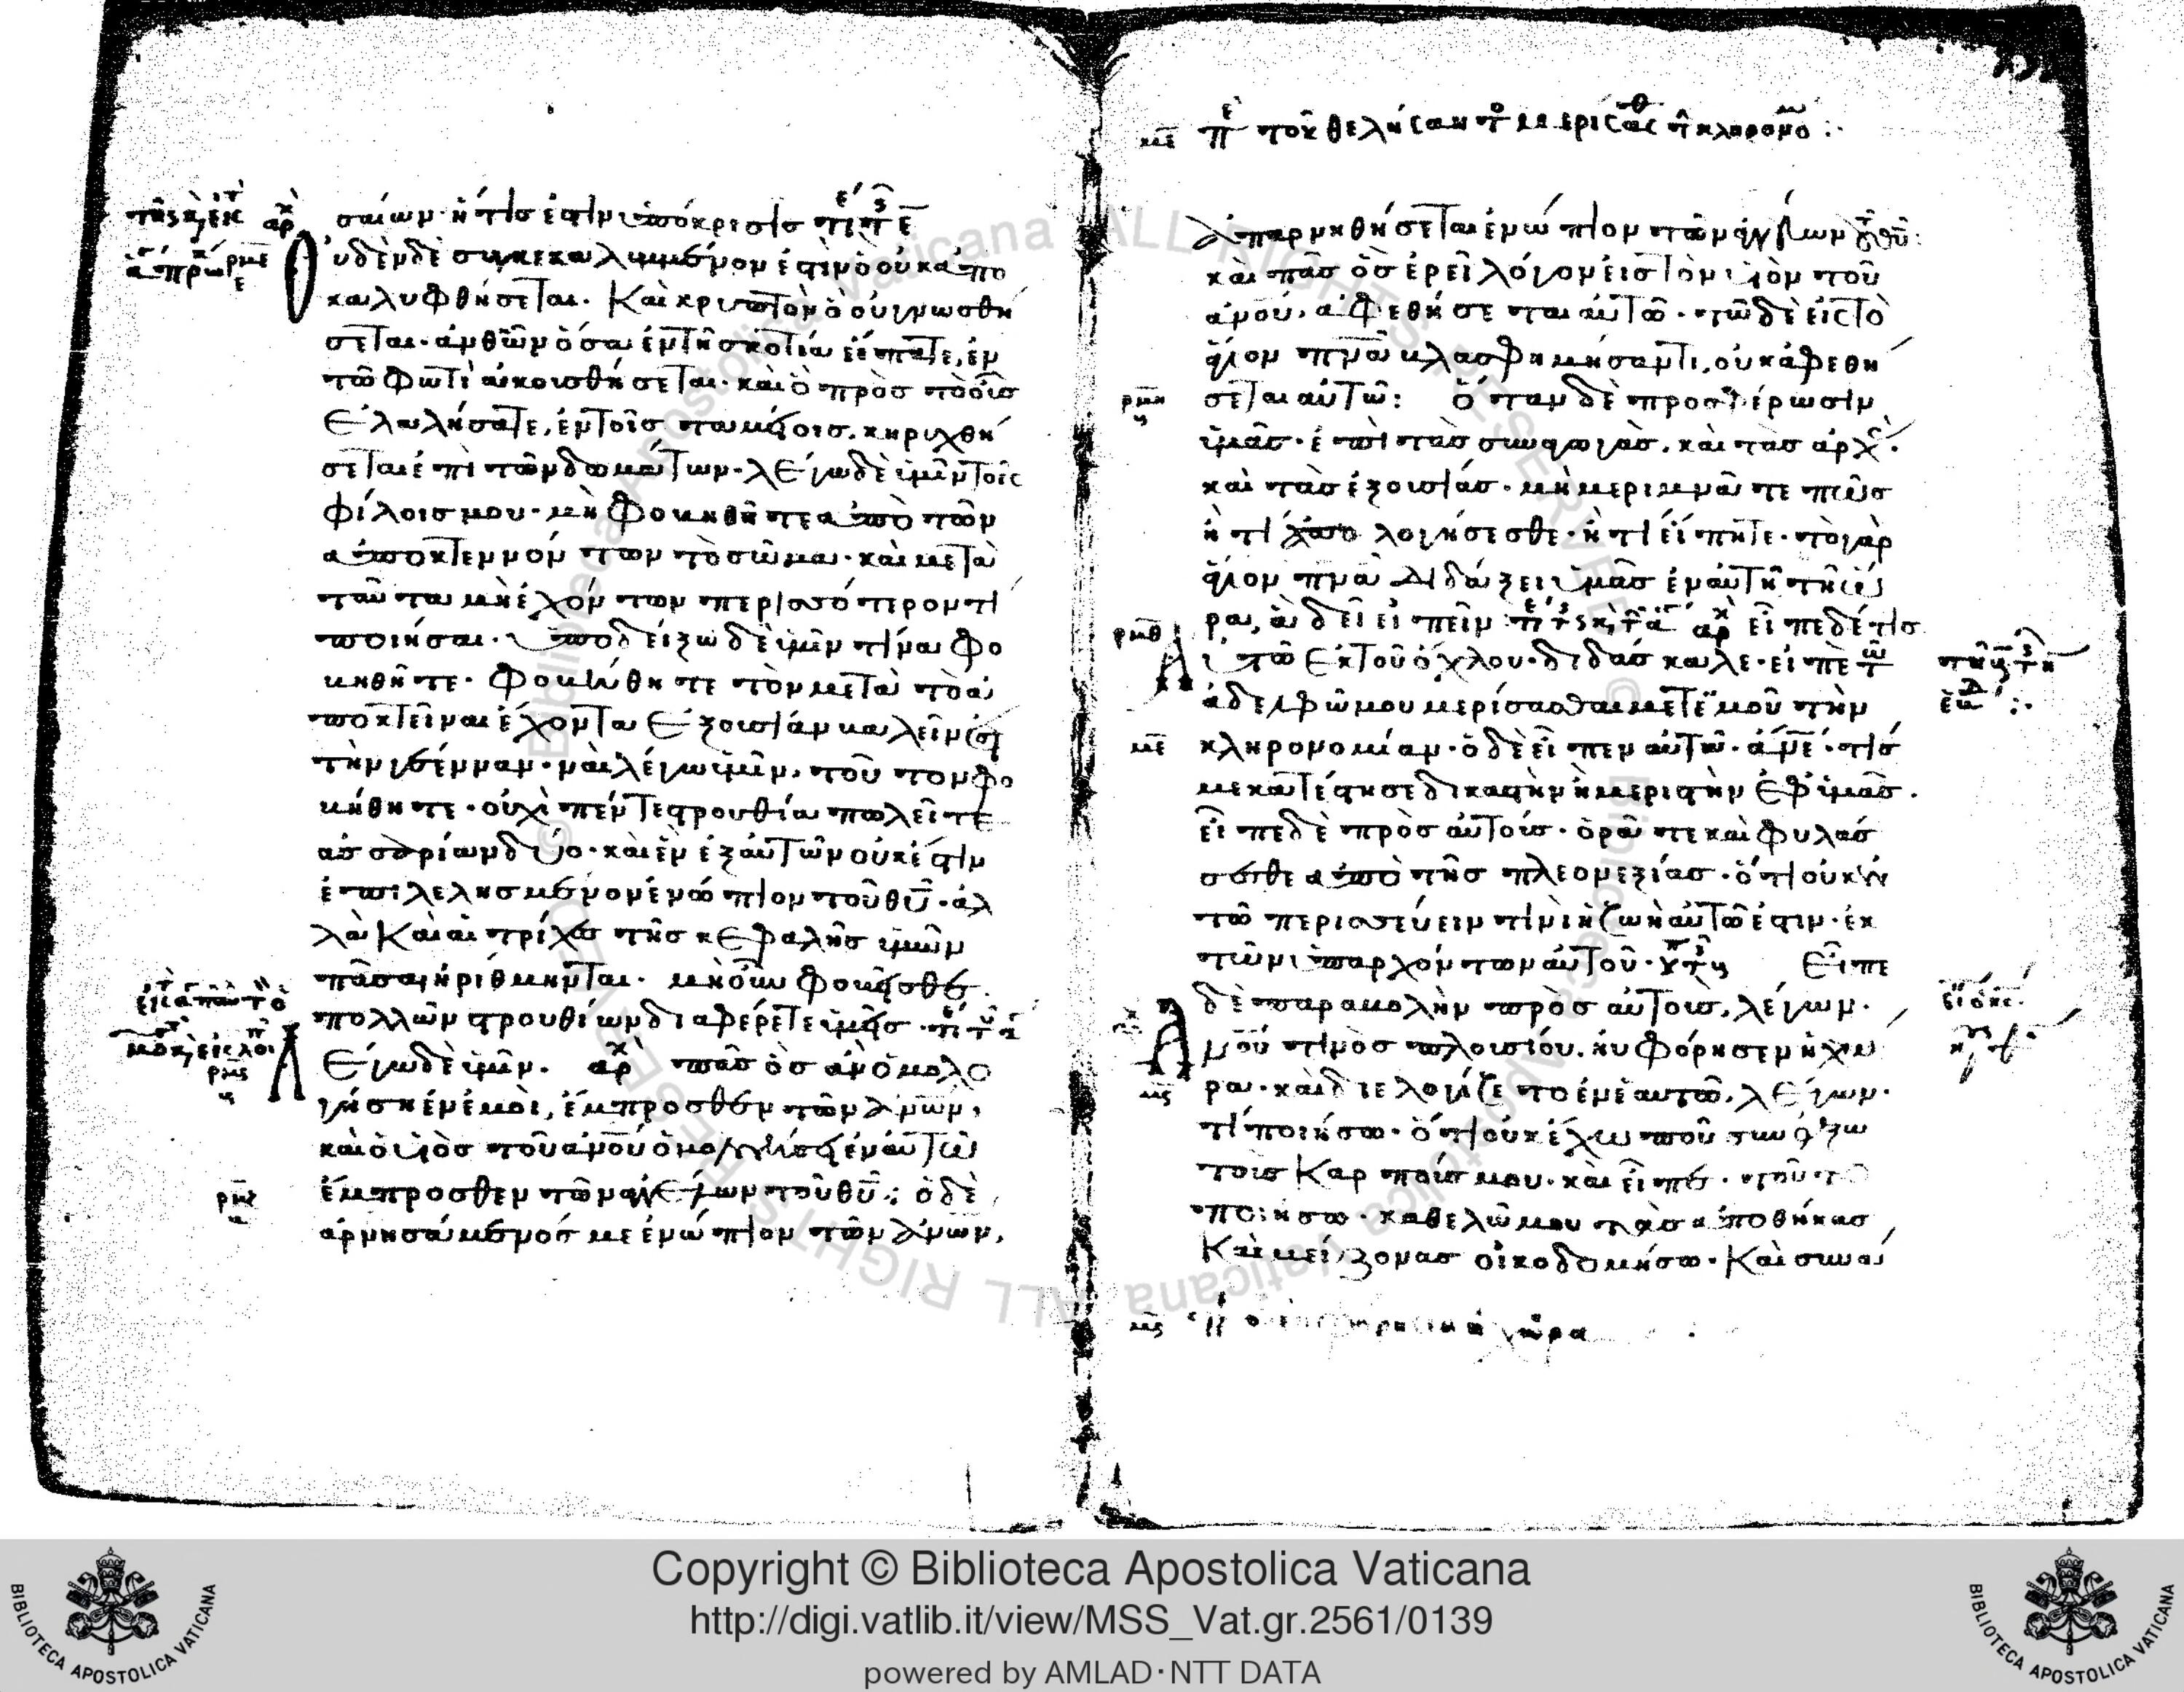 σαίων· ἥτις ἐστὶν ὑπόκρισις
Οὐδὲν δὲ συγκεκαλυμμένον ἐστὶν ὃ οὐκ ἀπο
καλυφθήσεται. Καὶ κρυπτὸν ὃ οὐ γνωσθή
σεται· ἀνθῶν ὅσα ἐν τῆ σκοτία εἴπατε, ἐν
τῶ φωτὶ ἀκουσθήσεται· καὶ ὃ πρὸς τὸ οὖς
ἐλαλήσατε, ἐν τοῖς ταμείοις, κηρυχθή
σεται ἐπὶ τῶν δωμάτων· λέγω δὲ ὑμῖν τοῖς
φίλοις μου· μὴ φοβηθῆτε ἀπὸ τῶν
ἀποκτεννόντων τὸ σῶμα· καὶ μετὰ
ταῦτα μὴ ἐχόντων περισσότερον τὶ
ποιῆσαι. ὑποδείξω δὲ ὑμῖν τίνα φο
βηθῆτε· φοβήθητε τὸν μετὰ τὸ ἀ
ποκτεῖναι ἔχοντα ἐξουσίαν βαλεῖν εἰς
τὴν γέενναν· ναὶ λέγω ὑμῖν, τοῦτον φο
βήθητε· οὐχὶ πέντε στρουθία πωλεῖτε
ἀσσαρίων δύο· καὶ ἓν ἐξ αὐτῶν οὐκ ἔστιν
ἐπιλελησμένον ἐνώπιον τοῦ θῦ· ἀλ
λὰ καὶ αἱ τρίχες τῆς κεφαλῆς ὑμῶν
πᾶσαι ἠρίθμηνται. μὴ οὖν φοβεῖσθε·
πολλῶν στρουθίων διαφέρετε ὑμεῖς
Λέγω δὲ ὑμῖν. πᾶς ὃς ἂν ὁμολο
γήση ἐν ἐμοὶ, ἔμπροσθεν τῶν ἀνων,
καὶ ὁ υἱὸς τοῦ ἀνου ὁμολογήσει ἐν αὐτῶ
ρμζ ἔμπροσθεν τῶν ἀγγέλων τοῦ θῦ: ὁ δὲ
ἀρνησάμενός με ἐνώπιον τῶν ἀνων,
ἀπαρνηθήσεται ἐνώπιον τῶν ἀγγέλων τοῦ θῦ:
καὶ πᾶς ὃς ἐρεῖ λόγον εἰς τὸν υἱὸν τοῦ
ἀνου, ἀφεθήσεται αὐτῶ· τῶ δὲ εἰς τὸ
ἅγιον πνα βλασφημήσαντι, οὐκ ἀφεθή
ρμη σεται αὐτῶ: ὅταν δὲ προσφέρωσιν
ὑμᾶς· ἐπὶ τὰς συναγωγὰς, καὶ τὰς ἀρχ·
καὶ τὰς ἐξουσίας· μὴ μεριμνᾶτε πῶς
ἢ τί ἀπολογήσεσθε· ἢ τί εἴπητε· τὸ γὰρ
ἅγιον πνα διδάξει ὑμᾶς ἐν αὐτῆ τῆ ὥ
ρμθ ρα, ἃ δεῖ εἰπεῖν εἶπε δέ τις
αὐτῶ ἐκ τοῦ ὄχλου· διδάσκαλε· εἰπὲ τῶ
ἀδελφῶ μου μερίσασθαι μετ' ἐμοῦ τὴν
με κληρονομίαν· ὁ δὲ εἶπεν αὐτῶ· ἄνε· τίς
με κατέστησε δικαστὴν ἢ μεριστὴν ἐφ' ὑμᾶς.
εἶπε δὲ πρὸς αὐτοὺς· ὁρᾶτε καὶ φυλάσ
σεσθε ἀπὸ τῆς πλεονεξίας· ὅτι οὐκ ἐν
τῶ περισσεύειν τινὶ ἡ ζωὴ αὐτῶ ἐστιν· ἐκ
τῶν ὑπαρχόντων αὐτοῦ· Εἶπε
δὲ παραβολὴν πρὸς αὐτοὺς, λέγων·
Ἀνου τινὸς πλουσίου, εὐφόρησεν ἡ χώ
ρα· καὶ διελογίζετο ἐν ἑαυτῶ, λέγων·
τί ποιήσω· ὅτι οὐκ ἔχω ποῦ συνάξω
τοὺς καρπούς μου· καὶ εἶπε· τοῦτο
ποιήσω· καθελῶ μου τὰς ἀποθήκας
καὶ μείζονας οἰκοδομήσω· Καὶ συνά
Copyright © Biblioteca Apostolica Vaticana
http://digi.vatlib.it/view/MSS_Vat.gr.2561/0139
powered by AMLAD·NTT DATA
BIBLIOTECA APOSTOLICA VATICANA
BIBLIOTECA APOSTOLICA VATICANA